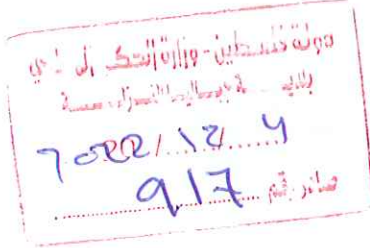 دولة فلسطين - وزارة الحكم المحلي
بلدية
2022/12/4
صادر رقم 917